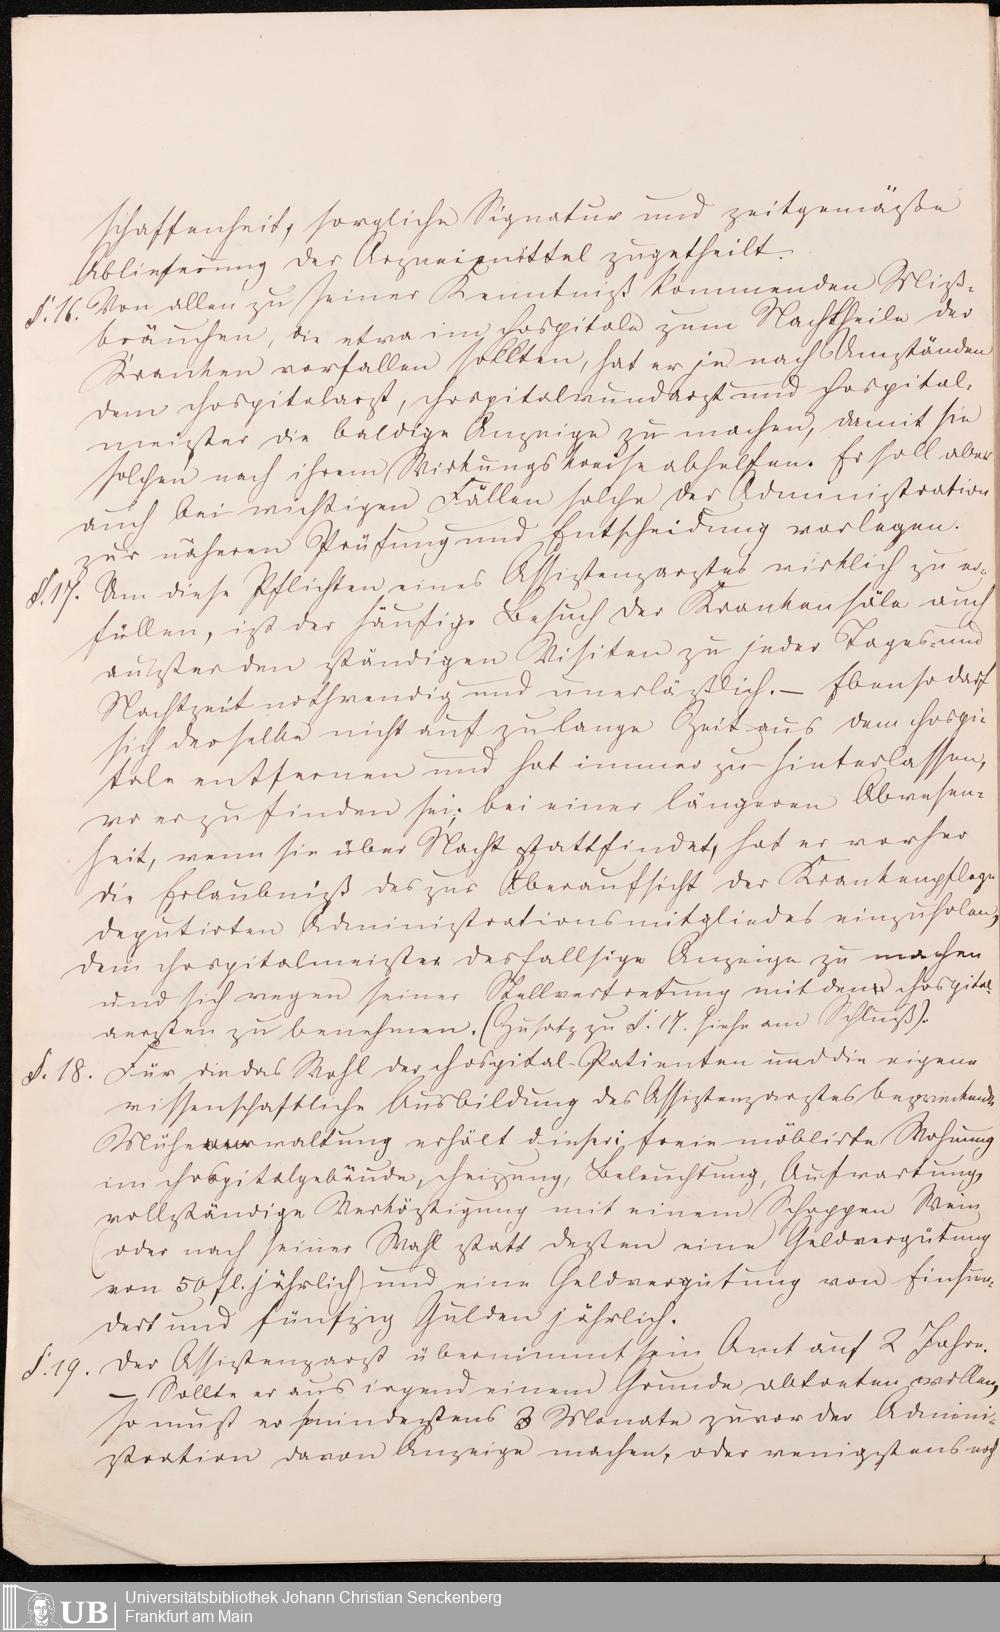 schaffenheit, sorgliche Signatur und zeitgemäße
Ablieferung der Arzneimittel zugetheilt.
§. 16. Von allen zu seiner Kenntniß kommenden Miß-
bräuchen, die etwa im Hospitale zum Nachtheile der
Kranken vorfallen sollten, hat er je nach Umständen
dem Hospitalarzt, Hospitalwundarzt und Hospital-
meister die baldige Anzeige zu machen, damit sie
solchen nach ihrem Wirkungskreise abhelfen. Er soll aber
auch bei wichtigen Fällen solche der Administration
zur näheren Prüfung und Entscheidung vorlegen.
§. 17. Um diese Pflichten eines Assistenzarztes wirklich zu er-
füllen, ist der häufige Besuch der Krankensäle auch
außer den ständigen Visiten zu jeder Tages- und
Nachtzeit nothwendig und unerläßlich. — Ebenso darf
sich derselbe nicht auf zu lange Zeit aus dem Hospi-
tale entfernen und hat immer zu hinterlassen,
wo er zu finden sei; bei einer längeren Abwesen-
heit, wenn sie über Nacht stattfindet, hat er vorher
die Erlaubniß des zur Oberaufsicht der Krankenpflege
deputirten Administrationsmitgliedes einzuholen,
dem Hospitalmeister desfallsige Anzeige zu machen
und sich wegen seiner Stellvertretung mit den Hospital-
aerzten zu benehmen. (Zusatz zu §. 17. siehe am Schluß).
§. 18. Für die das Wohl der Hospital-Patienten und die eigene
wissenschaftliche Ausbildung des Assistenzarztes bezweckende
Mühewaltung erhält dieser: freie möblirte Wohnung
im Hospitalgebäude, Heizung, Beleuchtung, Aufwartung,
vollständige Verköstigung mit einem Schoppen Wein
(oder nach seiner Wahl statt dessen eine Geldvergütung
von 50 fl. jährlich) und eine Geldvergütung von Einhun-
dert und fünfzig Gulden jährlich.
§. 19. Der Assistenzarzt übernimmt sein Amt auf 2 Jahre.
— Sollte er aus irgend einem Grunde abtreten wollen,
so muß er mindestens 3 Monate zuvor der Admini-
stration davon Anzeige machen, oder wenigstens noch
UB
Universitätsbibliothek Johann Christian Senckenberg
Frankfurt am Main